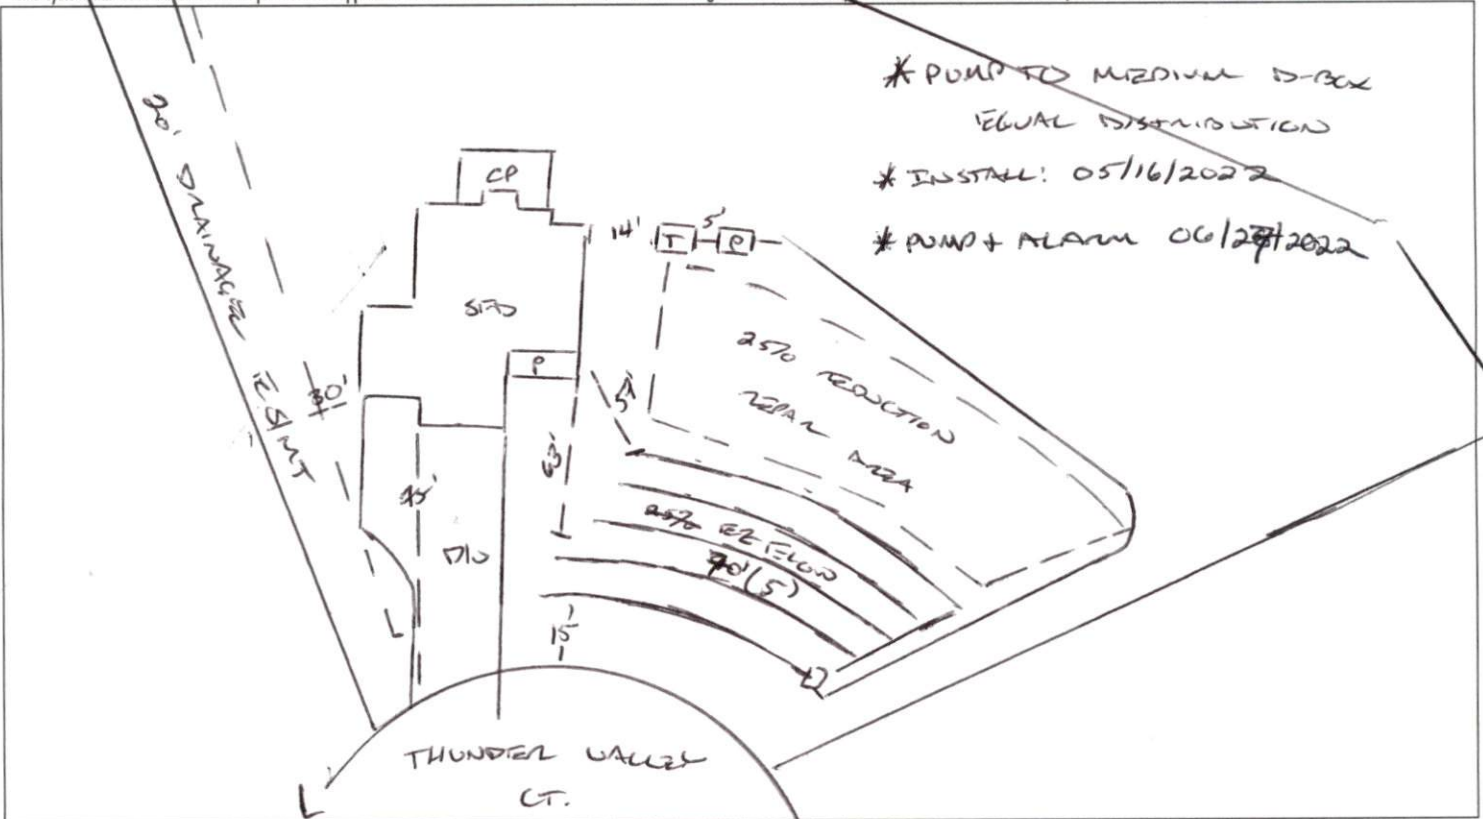 * PUMP TO MEDIUM D-BOX
EQUAL DISTRIBUTION
* INSTALL: 05/16/2022
* PUMP + ALARM 06/27/2022
20' DRAINAGE ESMT
CP
14'
T
5'
P
SFD
P
30'
25% REDUCTION
REPAIR AREA
5'
63'
45'
D/W
25% EZ FLOW
90' (5)
15'
THUNDER VALLEY
CT.